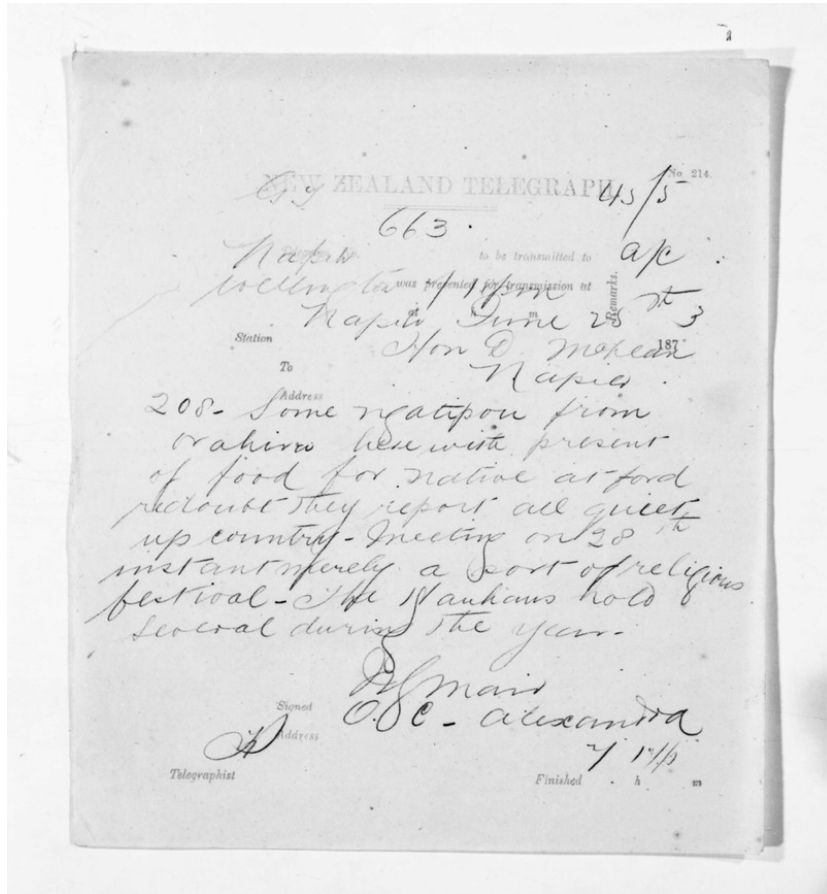 No. 214.
NEW ZEALAND TELEGRAPH.
663.
Napier to be transmitted to
Wellington was presented for transmission at
Remarks.
at h m
Napier June 25th 3
Station 187
Hon D. McLean
To
Napier.
Address
208 - Some ngatipou from
orahiri here with present
of food for native at ford
redoubt they report all quiet
up country - Meeting on 28th
instant merely a sort of religious
festival - The Hauhaus hold
several during the year -
Mair
Signed
O. C - Alexandra
Address
Telegraphist Finished h m